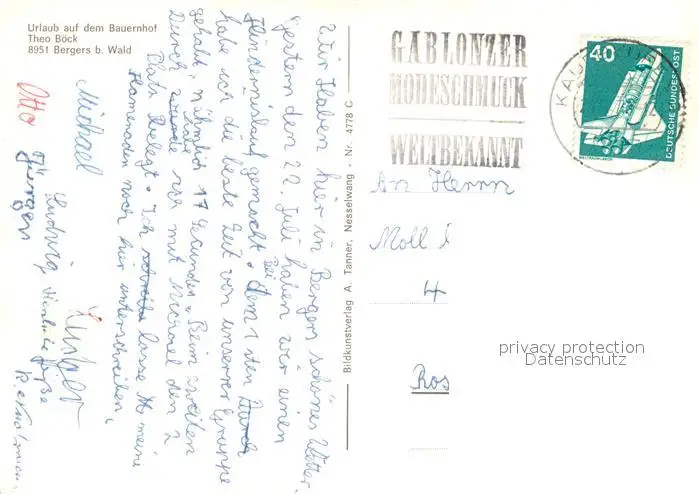 Urlaub auf dem Bauernhof
Theo Böck
8951 Bergers b. Wald
Wir haben hier in Bergers schönes Wetter.
Gestern den 22. Juli haben wir einen
gemacht. Bei dem 1 ten Durch
habe ich die beste Zeit von unserer Gruppe
gehabt, nähmlich 17 Sekunden. Beim zweiten
Durch wurde ich mit Michael den 2
Platz Belegt. Ich schreibe lasse meine
Kameraden noch hier unterschreiben.
Michael
Otto
Jürgen
Ludwig
Bildkunstverlag A. Tanner, Nesselwang · Nr. 4778 C
GABLONZER
MODESCHMUCK
WELTBEKANNT
KAU
40
DEUTSCHE BUNDESPOST
WELTRAUMLABOR
An Herrn
Moll
4
Ros
privacy protection
Datenschutz